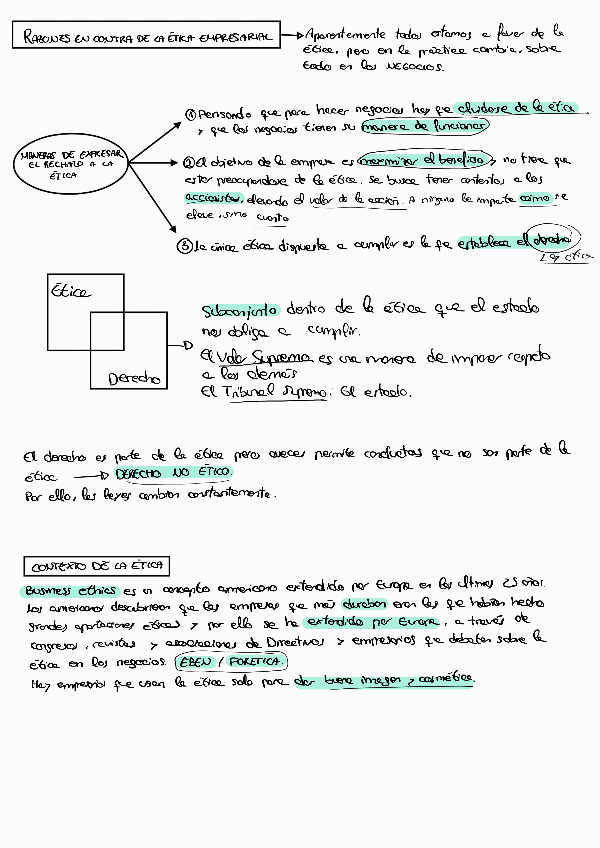 RAZONES EN CONTRA DE LA ÉTICA EMPRESARIAL
Aparentemente todos estamos a favor de la
ética, pero en la práctica cambia, sobre
todo en los NEGOCIOS.
MANERAS DE EXPRESAR
EL RECHAZO A LA
ÉTICA
① Pensando que para hacer negocios hay que olvidarse de la ética
y que los negocios tienen su manera de funcionar
② El objetivo de la empresa es maximizar el beneficio y no tiene que
estar preocupandose de la ética. Se busca tener contentos a los
accionistas, elevando el valor de la acción. A ninguno le importa cómo se
eleve, sino cuanto
③ La única ética dispuesta a cumplir es la que establece el derecho
Ley ética
Ética
Derecho
Subconjunto dentro de la ética que el estado
nos obliga a cumplir.
El Valor Supremo es una manera de imponer respeto
a los demás
El Tribunal Supremo: El estado.
El derecho es parte de la ética pero aveces permite conductas que no son parte de la
ética DERECHO NO ÉTICO.
Por ello, las leyes cambian constantemente.
CONTEXTO DE LA ÉTICA
Business ethics es un concepto americano extendido por Europa en los últimos 25 años.
Los americanos descubrieron que las empresas que más duraban eran las que habían hecho
grandes aportaciones éticas y por ello se ha extendido por Europa, a través de
congresos, revistas y asociaciones de Directivos y empresarios que debaten sobre la
ética en los negocios. EBEN / FORETICA.
Hay empresas que usan la ética solo para dar buena imagen y cosmética.